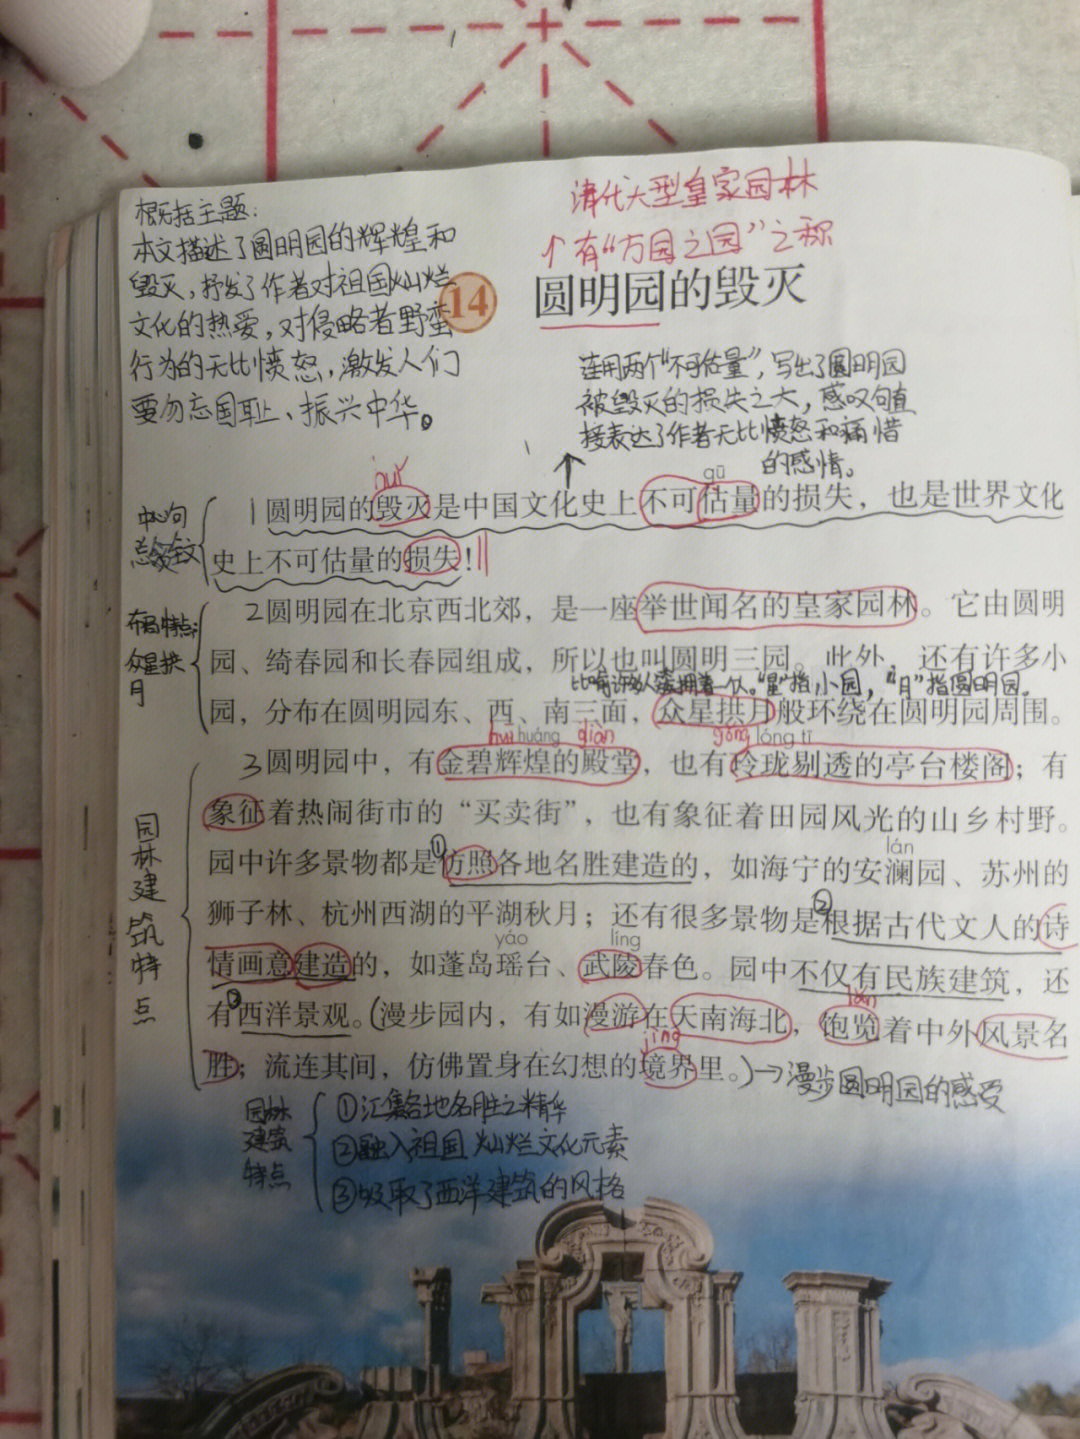 清代大型皇家园林
↑有“万园之园”之称
概括主题:
本文描述了圆明园的辉煌和
毁灭,抒发了作者对祖国灿烂
文化的热爱,对侵略者野蛮
行为的无比愤怒,激发人们
要勿忘国耻、振兴中华。
14 圆明园的毁灭
连用两个“不可估量”,写出了圆明园
被毁灭的损失之大,感叹句直
接表达了作者无比愤怒和痛惜
的感情。
huǐ gū
中心句
总领全文
1圆明园的毁灭是中国文化史上不可估量的损失,也是世界文化
史上不可估量的损失!
布局特点:
众星拱
月
2圆明园在北京西北郊,是一座举世闻名的皇家园林。它由圆明
园、绮春园和长春园组成,所以也叫圆明三园。此外,还有许多小
比喻许多人簇拥着一个人。“星”指小园,“月”指圆明园。
园,分布在圆明园东、西、南三面,众星拱月般环绕在圆明园周围。
huī huáng diàn gōng lóng tī
园林建筑特点
3圆明园中,有金碧辉煌的殿堂,也有玲珑剔透的亭台楼阁;有
象征着热闹街市的“买卖街”,也有象征着田园风光的山乡村野。
lán
园中许多景物都是①仿照各地名胜建造的,如海宁的安澜园、苏州的
狮子林、杭州西湖的平湖秋月;还有很多景物是②根据古代文人的诗
yáo líng
情画意建造的,如蓬岛瑶台、武陵春色。园中不仅有民族建筑,还
有③西洋景观。(漫步园内,有如漫游在天南海北,饱览着中外风景名
lǎn
jìng
胜;流连其间,仿佛置身在幻想的境界里。)→漫步圆明园的感受
园林
建筑
特点
①汇集各地名胜之精华
②融入祖国灿烂文化元素
③吸取了西洋建筑的风格